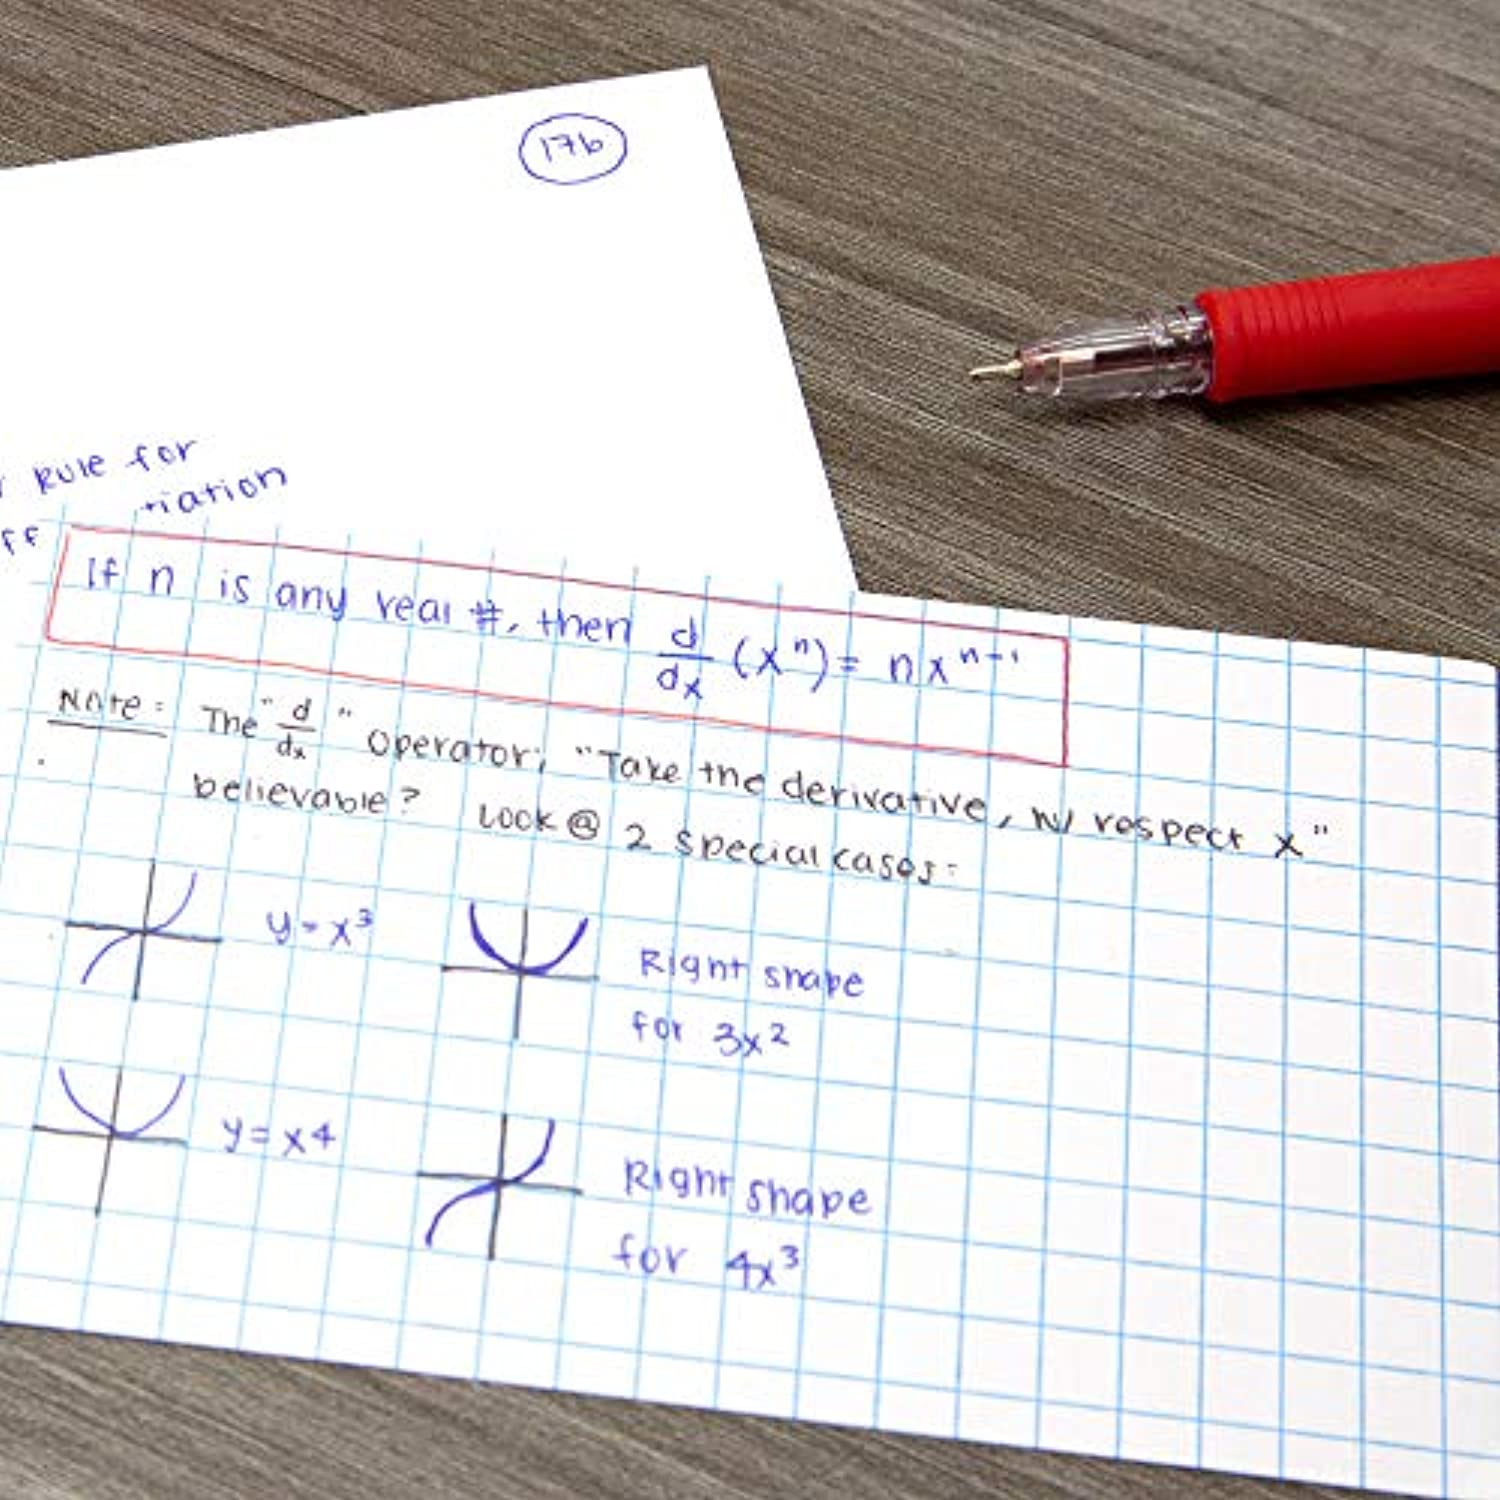 17b
Rule for
ff tiation
If n is any real #, then d/dx (xⁿ) = nxⁿ⁻¹
Note: The "d/dx" operator; "Take the derivative, w/ respect x"
believable? Look @ 2 special cases:
y = x³
Right shape
for 3x²
y = x4
Right shape
for 4x³